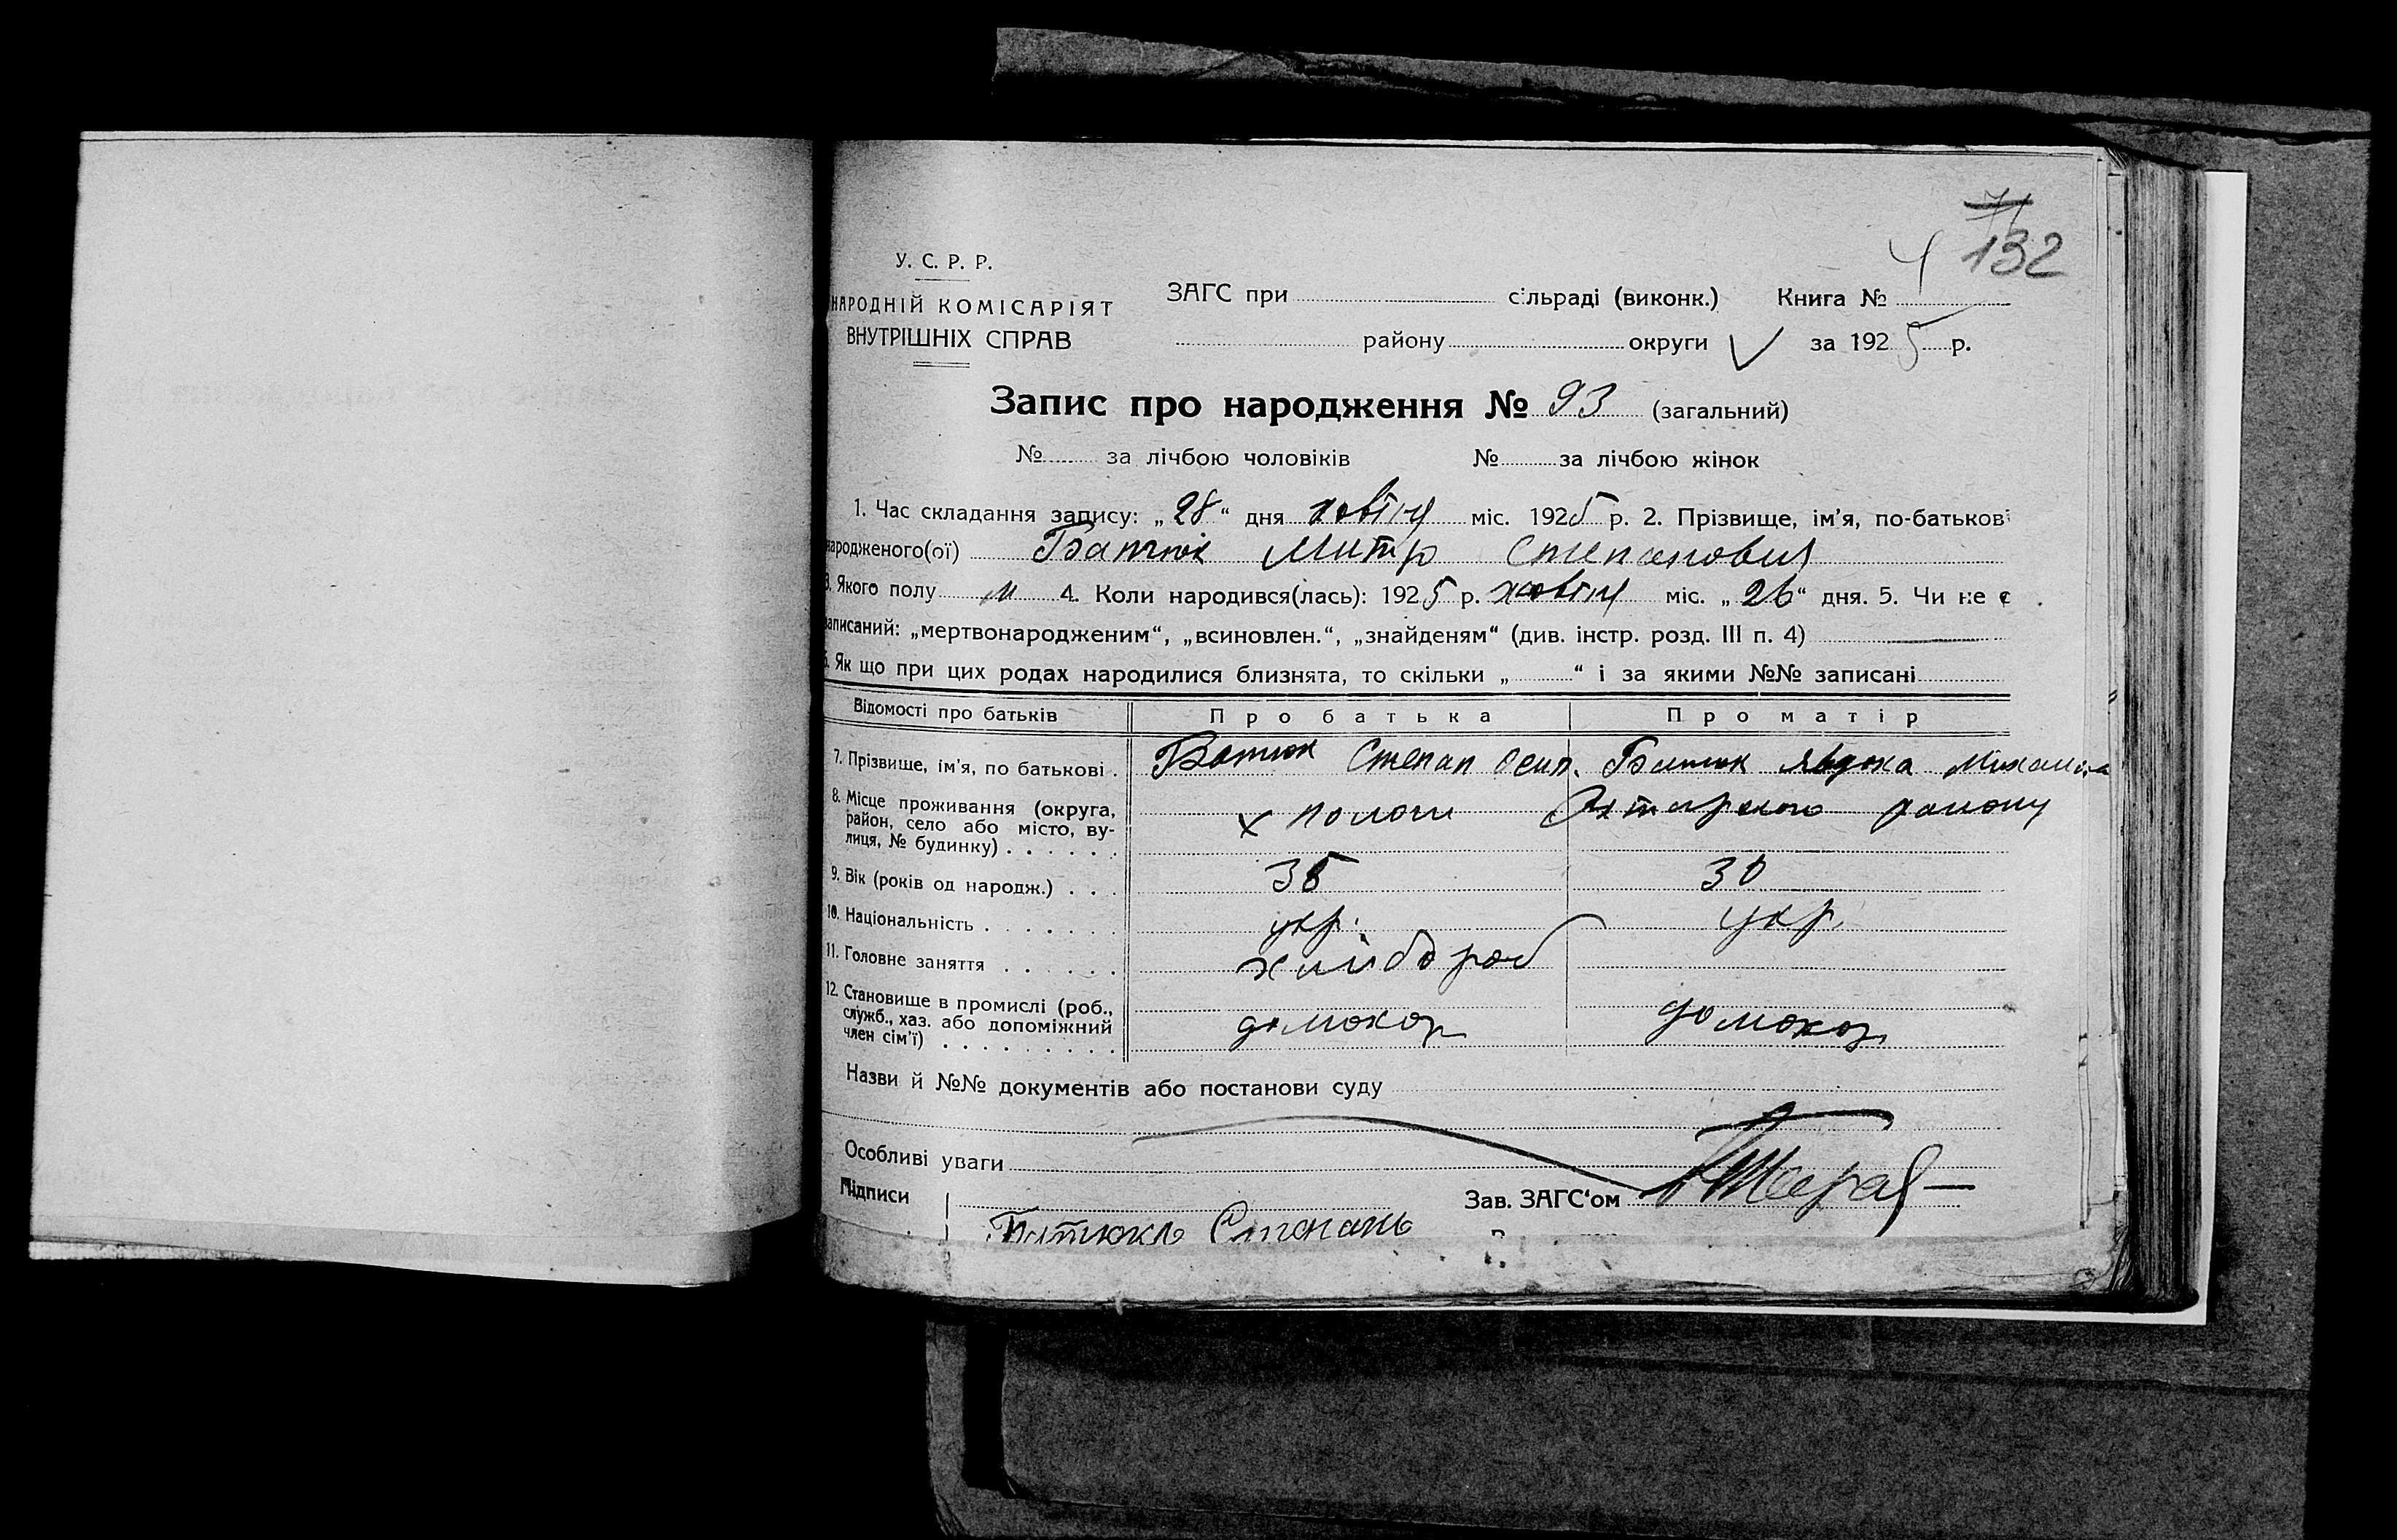 132
У. С. Р. Р.
НАРОДНІЙ КОМІСАРІЯТ
ВНУТРІШНІХ СПРАВ
ЗАГС при сільраді (виконк.) Книга №
району округи за 1925 р.
Запис про народження № 93 (загальний)
№ за лічбою чоловіків № за лічбою жінок
1. Час складання запису: „28“ дня міс. 1925 р. 2. Прізвище, ім’я, по-батькові
народженого(ої) Батюк Митро Степанович
3. Якого полу м 4. Коли народився(лась): 1925 р. жовтня міс. „26“ дня. 5. Чи не є
записаний: „мертвонародженим“, „всиновлен.“, „знайденям“ (див. інстр. розд. III п. 4)
6. Як що при цих родах народилися близнята, то скільки „ “ і за якими №№ записані
Відомості про батьків Про батька Про матір
7. Прізвище, ім’я, по батькові . Батюк Степан Осип. Батюк Явдоха
8. Місце проживання (округа, район, село або місто, вулиця, № будинку) х району
9. Вік (років од народж.) 35 30
10. Національність укр. укр.
11. Головне заняття хлібороб
12. Становище в промислі (роб., служб., хаз. або допоміжний член сім’ї) домохоз домохоз
Назви й №№ документів або постанови суду
Особливі уваги
Підписи Зав. ЗАГС‘ом
Батюкъ Степанъ